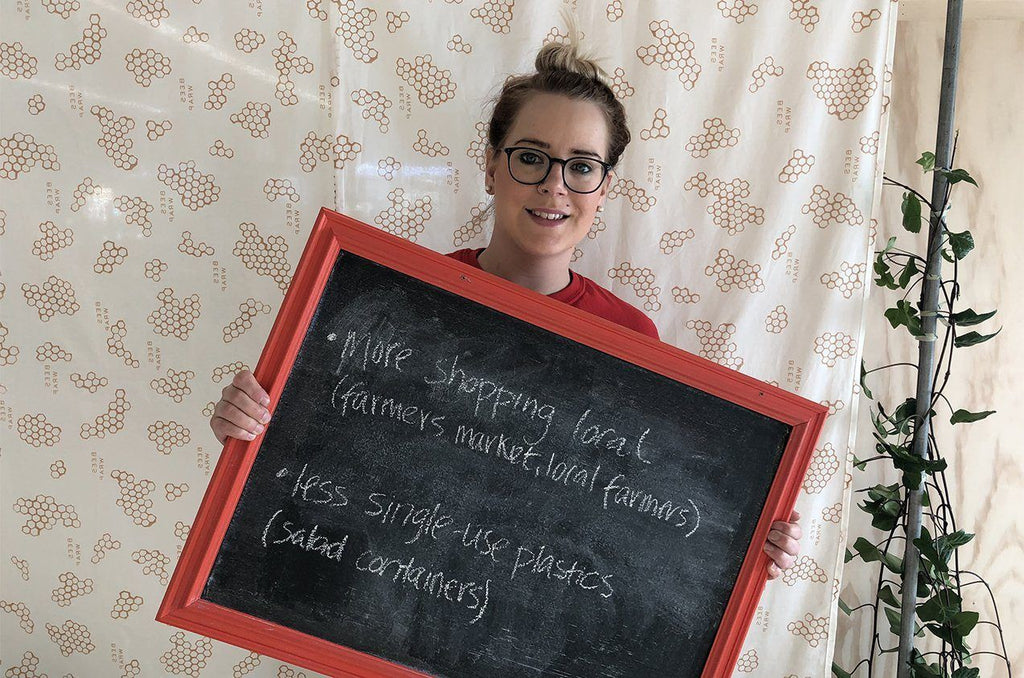 • More shopping local
(farmers market, local farmers)
• less single-use plastics
(salad containers)
BEES
WRAP